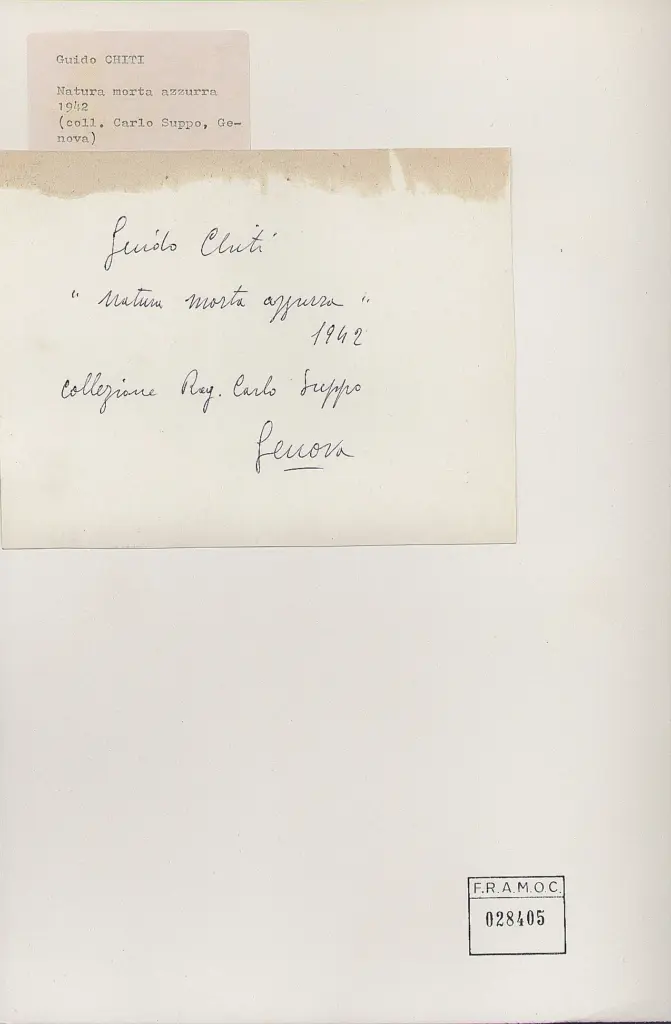 Guido CHITI
Natura morta azzurra
1942
(coll. Carlo Suppo, Ge-
nova)
Guido Chiti
" Natura morta azzurra "
1942
Collezione Rag. Carlo Suppo
Genova
F.R.A.M.O.C.
028405